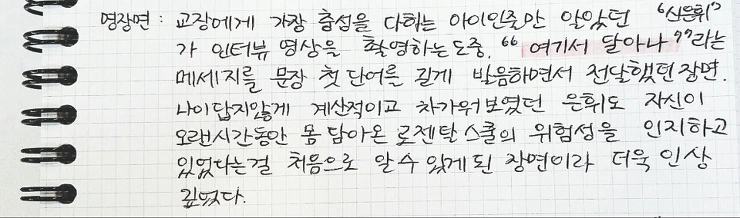 명장면 : 교장에게 가장 충성을 다하는 아이인줄만 알았던 "신은휘"
가 인터뷰 영상을 촬영하는 도중. "여기서 달아나"라는
메세지를 문장 첫 단어를 길게 발음하면서 전달했던 장면.
나이답지않게 계산적이고 차가워보였던 은휘도 자신이
오랜시간동안 몸 담아온 로젠탈 스쿨의 위험성을 인지하고
있었다는걸 처음으로 알 수 있게 된 장면이라 더욱 인상
깊었다.